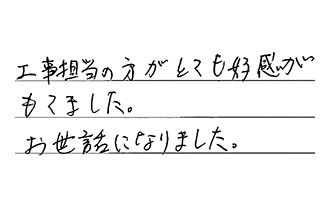 工事担当の方がとても好感が
もてました。
お世話になりました。